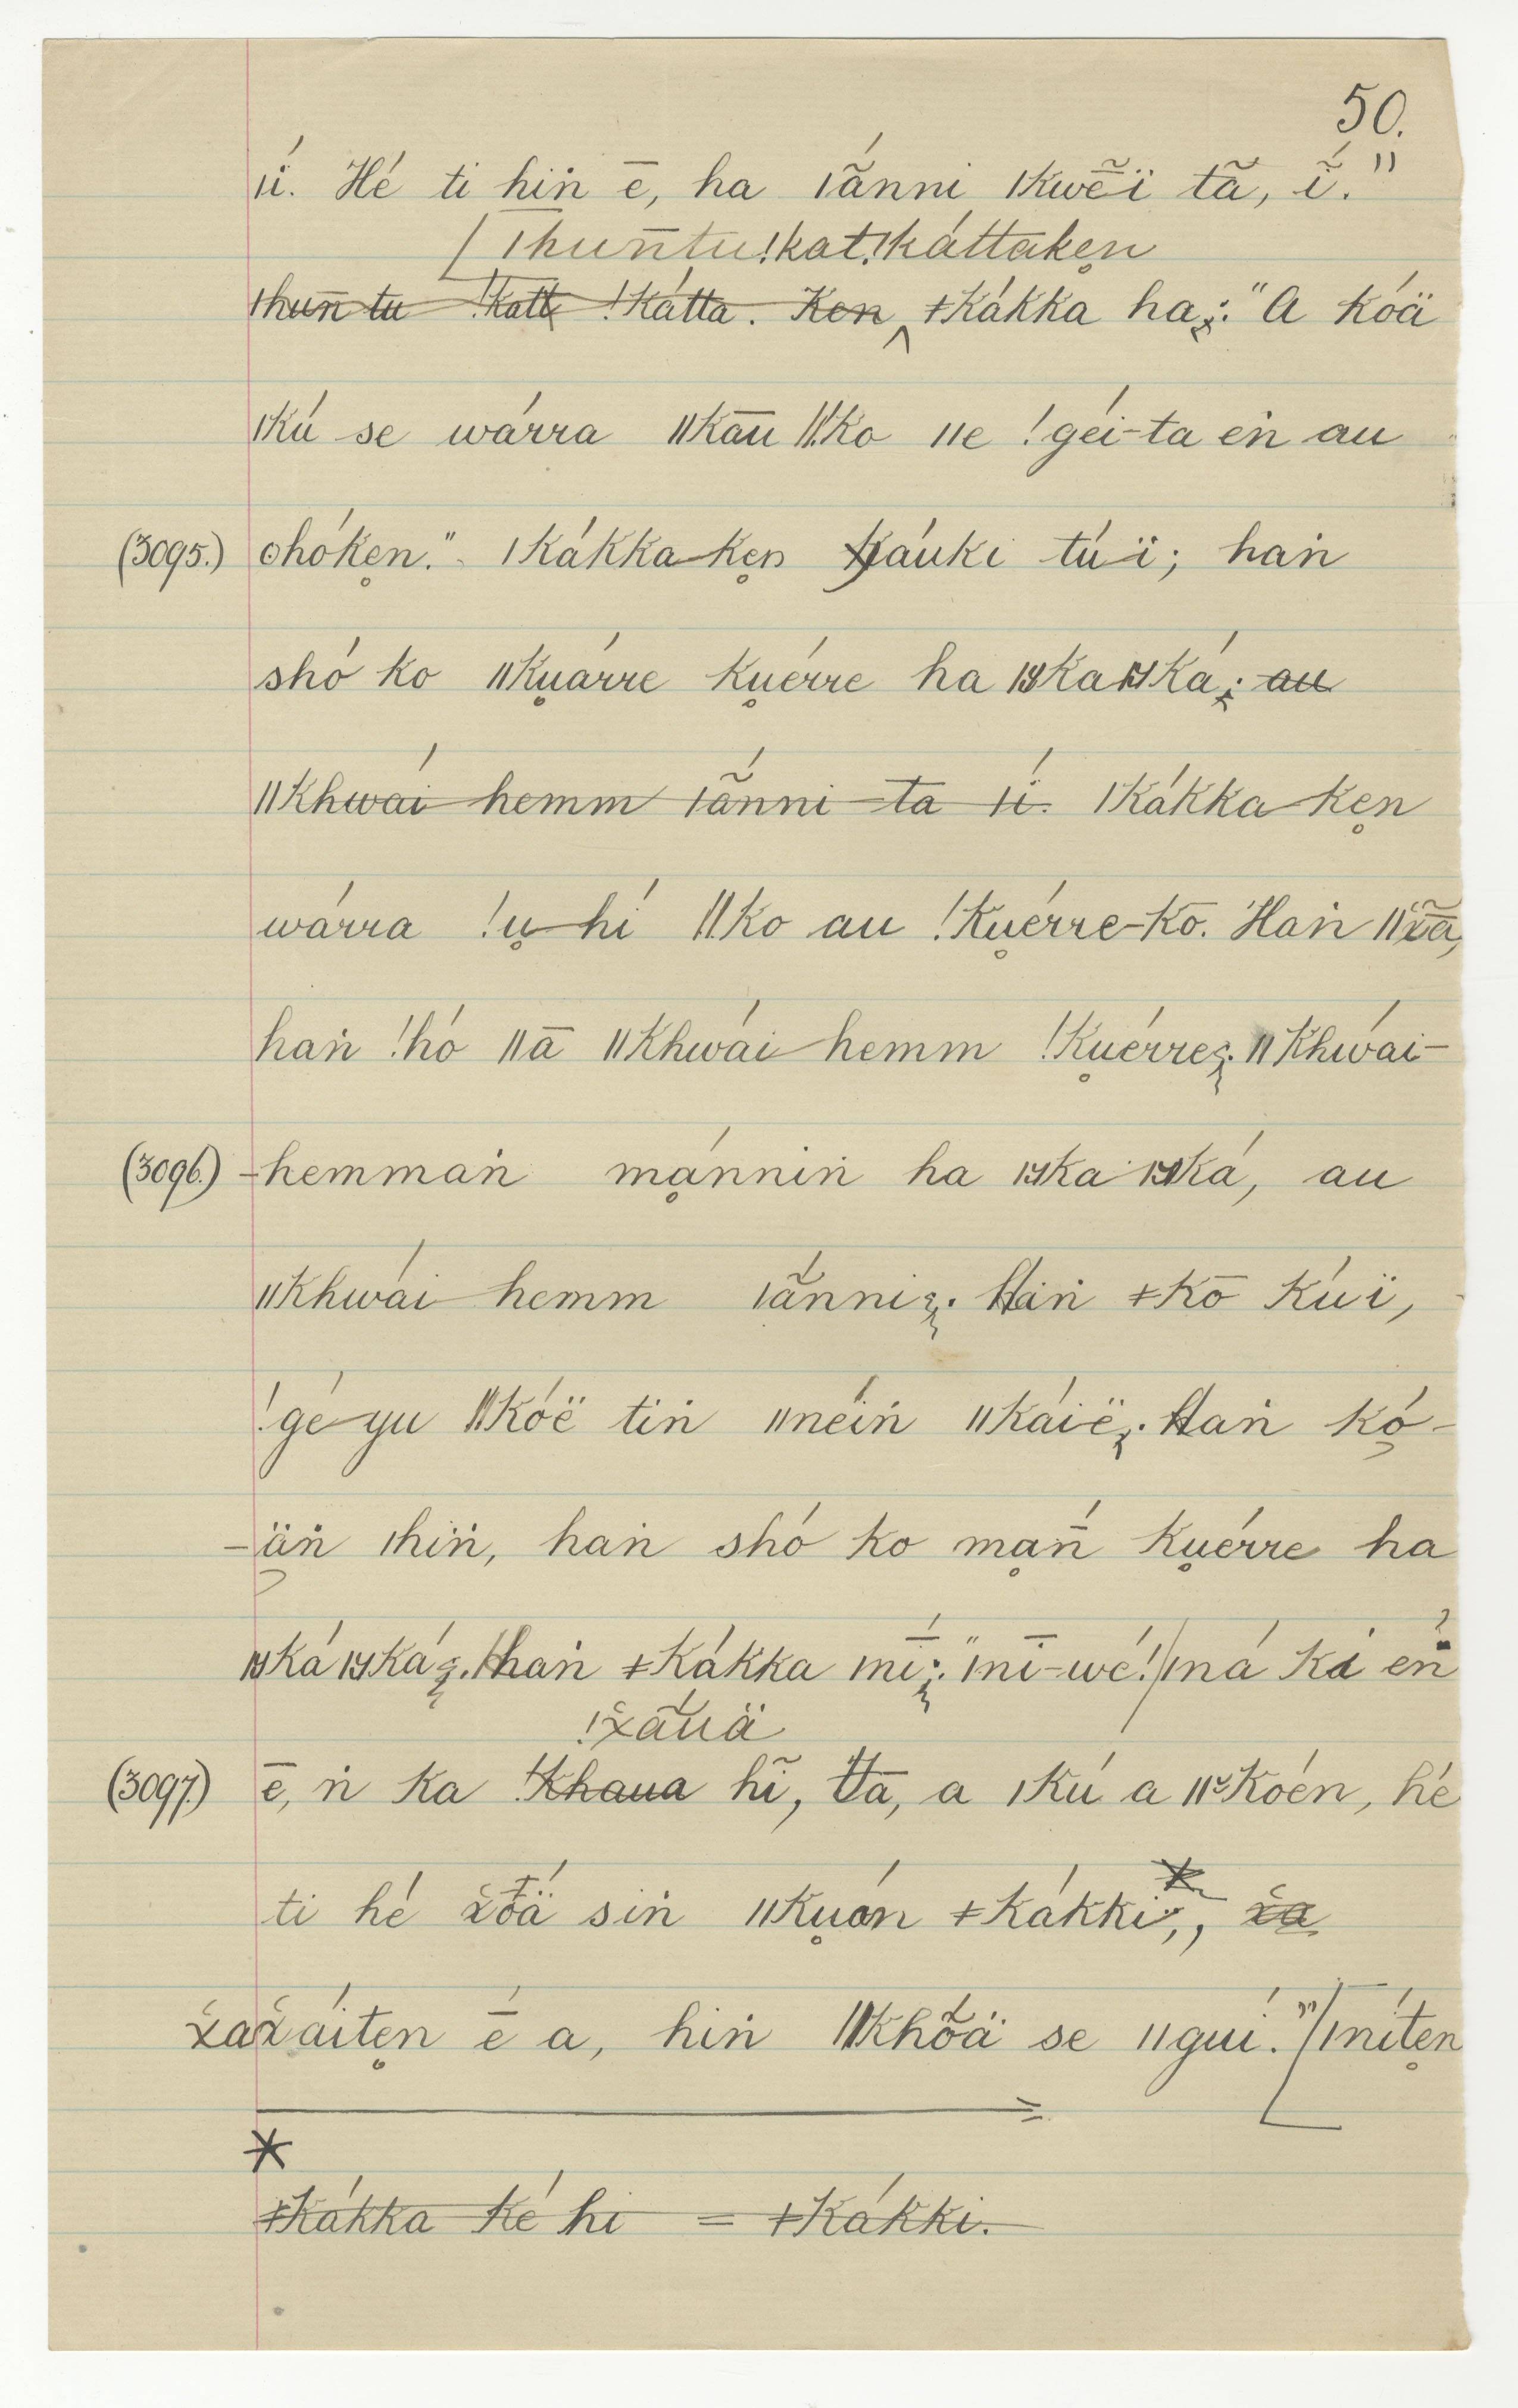 50.
ıı́. Hé ti hiṅ ē, ha ı̃ánni |kwẽï tã, ı̃́."
[|hun̄tu!kat!káttaken̥
|hun̄ tu !katt !kátta. Ken ‸ ǂkákka ha: "A kóä
|kú se wárra ǁkau̅ ǁko ǁe !géi-ta eṅ au
(3095.) ʘhóken̥." |kákka-ken̥ káuki tú ï; haṅ
shó ko ǁku̥árre ku̥érre ha |ɣka|ɣká; au
ǁkhwái hemm |ánni-ta |í. |kákka-ken̥
wárra !u̥-hí ǁko au !ku̥érre-kō. Haṅ ǁχã,
haṅ !hó ǁā ǁkhwái-hemm !ku̥érre. ǁkhwái-
(3096.) -hemmaṅ mḁ́nniṅ ha |ɣka|ɣká, au
ǁkhwái hemm |ánni. Haṅ ǂkō kúï,
!gé-yu ǁkóë tiṅ ǁnéiṅ ǁkáië. Haṅ kó-
-äṅ |hiṅ, haṅ shó ko mḁn̄ ku̥érre ha
|ɣká|ɣká. haṅ ǂkákka |nī́: "|nī-wé! /|ná ka eṅ
!χãúä
(3097.) ē, ṅ ka !khaua hĩ, tā, a |kú a ǁkóén, hé
ti hé χṓä siṅ ǁku̥án ǂkákki*, χa
χaχáiten̥ ḗ a, hiṅ ǁkhõä se ǁguí." [|níten̥
*
ǂkákka ké hi = ǂkákki.